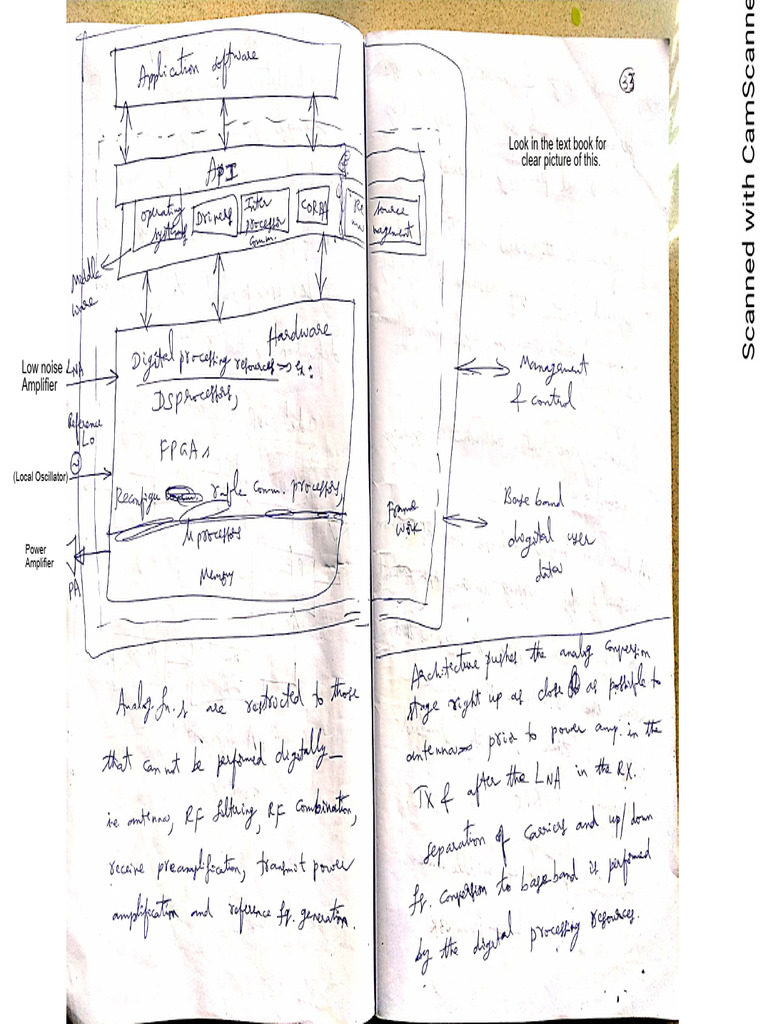 Application software
33
Look in the text book for
clear picture of this.
API
operating
systems
Drivers
Inter
processor
comm.
CORBA
Re source
ma nagement
Middle
ware
Hardware
Low noise LNA
Amplifier
Digital processing resources => Ex:
DSProcessors,
Management
& control
Reference
LO
~
FPGAs
(Local Oscillator)
Reconfigu rable Comm. processors,
μprocessors
Frame
work
Base band
diogital user
data
Power
Amplifier
PA
Memory
Analog fn.s are restricted to those
that can not be performed digitally_
ie antenna, RF filtering, RF Combination,
receive preamplification, transmit power
amplification and reference fq. generation.
Architecture pushes the analog conversion
stage right up as close as possible to
antenna prior to power amp. in the
TX & after the LNA in the RX.
separation of carriers and up/down
fq. conversion to base band is performed
by the digital processing resources.
Scanned with CamScanne